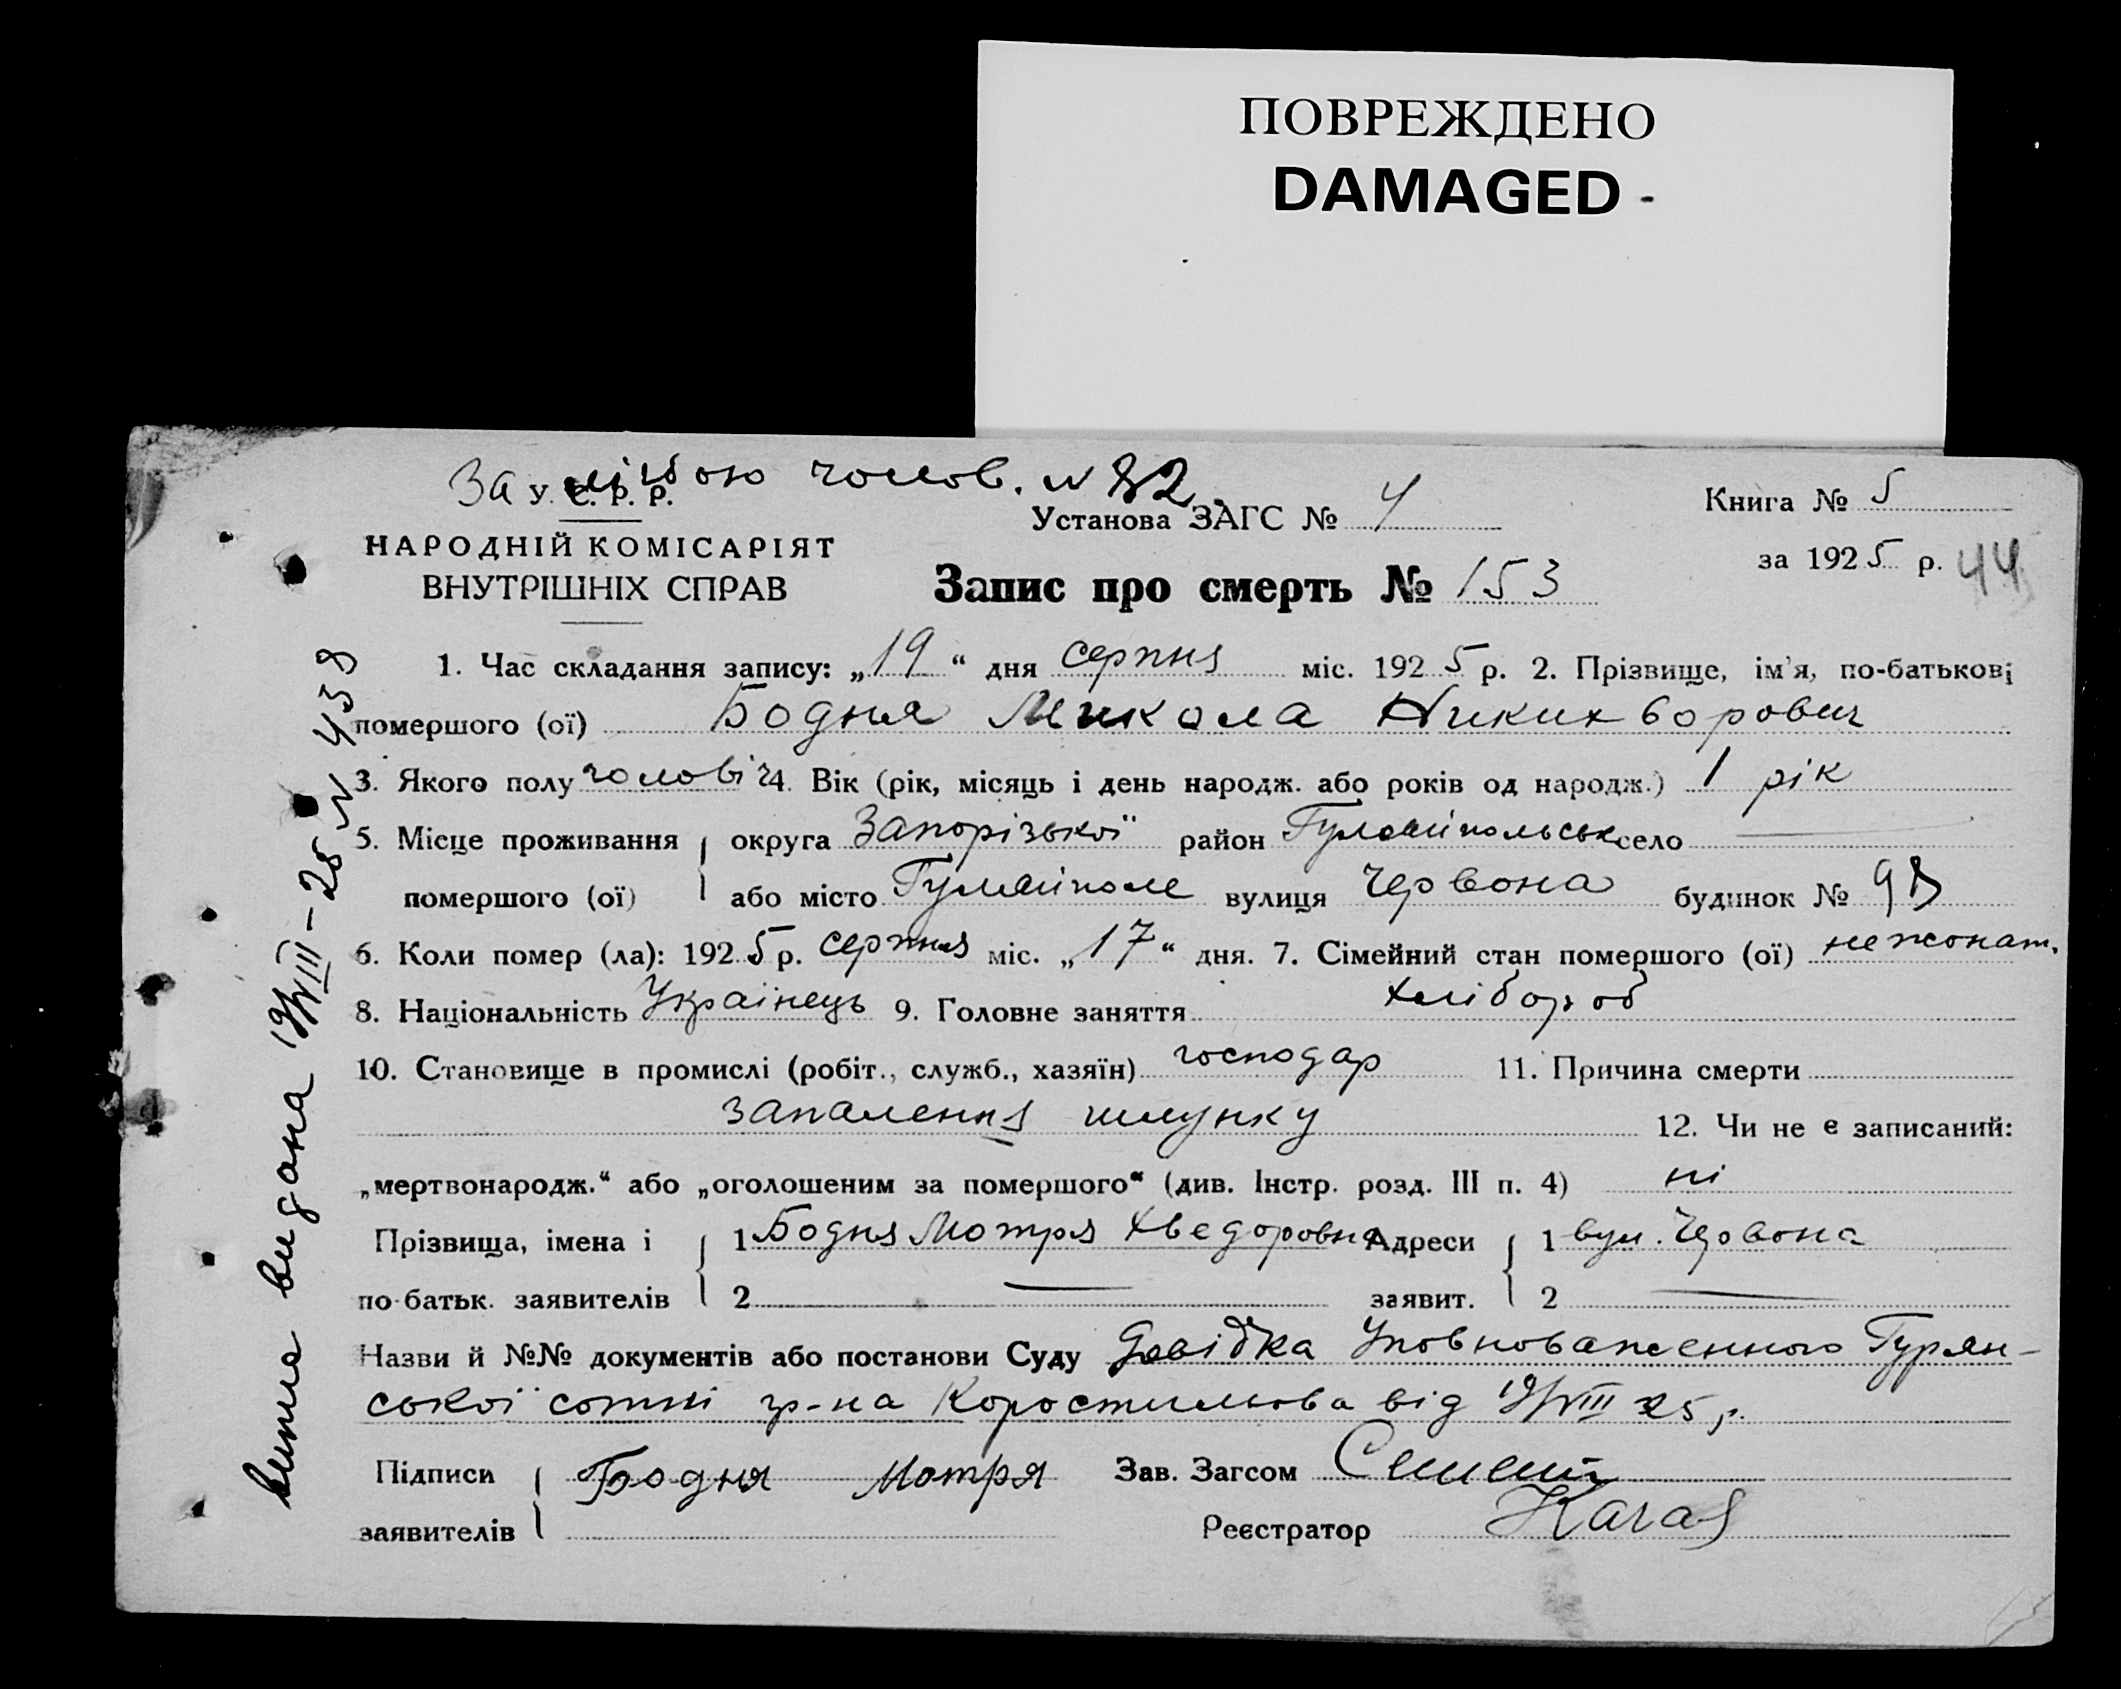 ПОВРЕЖДЕНО
DAMAGED
За лічбою чолов. № 82.
У. С. Р. Р.
Установа ЗАГС № 4
Книга № 5
НАРОДНІЙ КОМІСАРІЯТ
ВНУТРІШНІХ СПРАВ
за 1925 р. 44
Запис про смерть № 153
1. Час складання запису: „19“ дня серпня міс. 1925 р. 2. Прізвище, ім'я, по-батькові
помершого (ої) Бодня Микола Никихворович
3. Якого полу чоловіч 4. Вік (рік, місяць і день народж. або років од народж.) 1 рік
5. Місце проживання округа Запорізької район Гуляйпольськ село —
помершого (ої) або місто Гуляйполе вулиця Червона будинок №
6. Коли помер (ла): 1925 р. серпня міс. „17“ дня. 7. Сімейний стан помершого (ої) нежонат.
8. Національність Українець 9. Головне заняття хлібороб
10. Становище в промислі (робіт., служб., хазяїн) господар 11. Причина смерти
запалення шлунку 12. Чи не є записаний:
„мертвонародж.“ або „оголошеним за помершого“ (див. Інстр. розд. III п. 4) ні
Прізвища, імена і 1 Бодня Мотря Хведоровна Адреси 1 вул. Червона
по-батьк. заявителів 2 — заявит. 2 —
Назви й №№ документів або постанови Суду Довідка Уповноваженного Гурян-
ської сотні гр-на Коростильова від 19/VIII 25 р.
Підписи Бодня Мотря Зав. Загсом
заявителів Реєстратор
витя видана 19/VIII-25 № 438